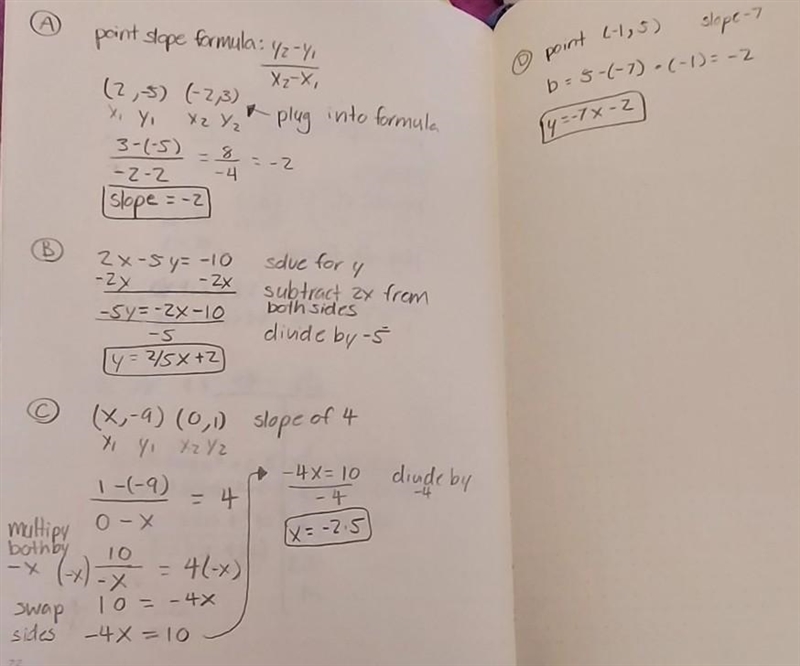 A point slope formula: y₂-y₁
x₂-x₁
(2,-5) (-2,3)
x₁ y₁ x₂ y₂ plug into formula
3-(-5) = 8 = -2
-2-2 -4
slope = -2
B 2x-5y=-10 solve for y
-2x -2x subtract 2x from
-5y=-2x-10 both sides
-5 divide by -5
y = 2/5x+2
C (x,-9) (0,1) slope of 4
x₁ y₁ x₂ y₂
1-(-9) = 4
0-x
multipy
both by
-x (-x) 10 = 4(-x)
-x
swap 10 = -4x
sides -4x = 10
-4x = 10 divide by
-4 -4
x = -2.5
D point (-1,5) slope-7
b = 5-(-7)•(-1) = -2
y=-7x-2